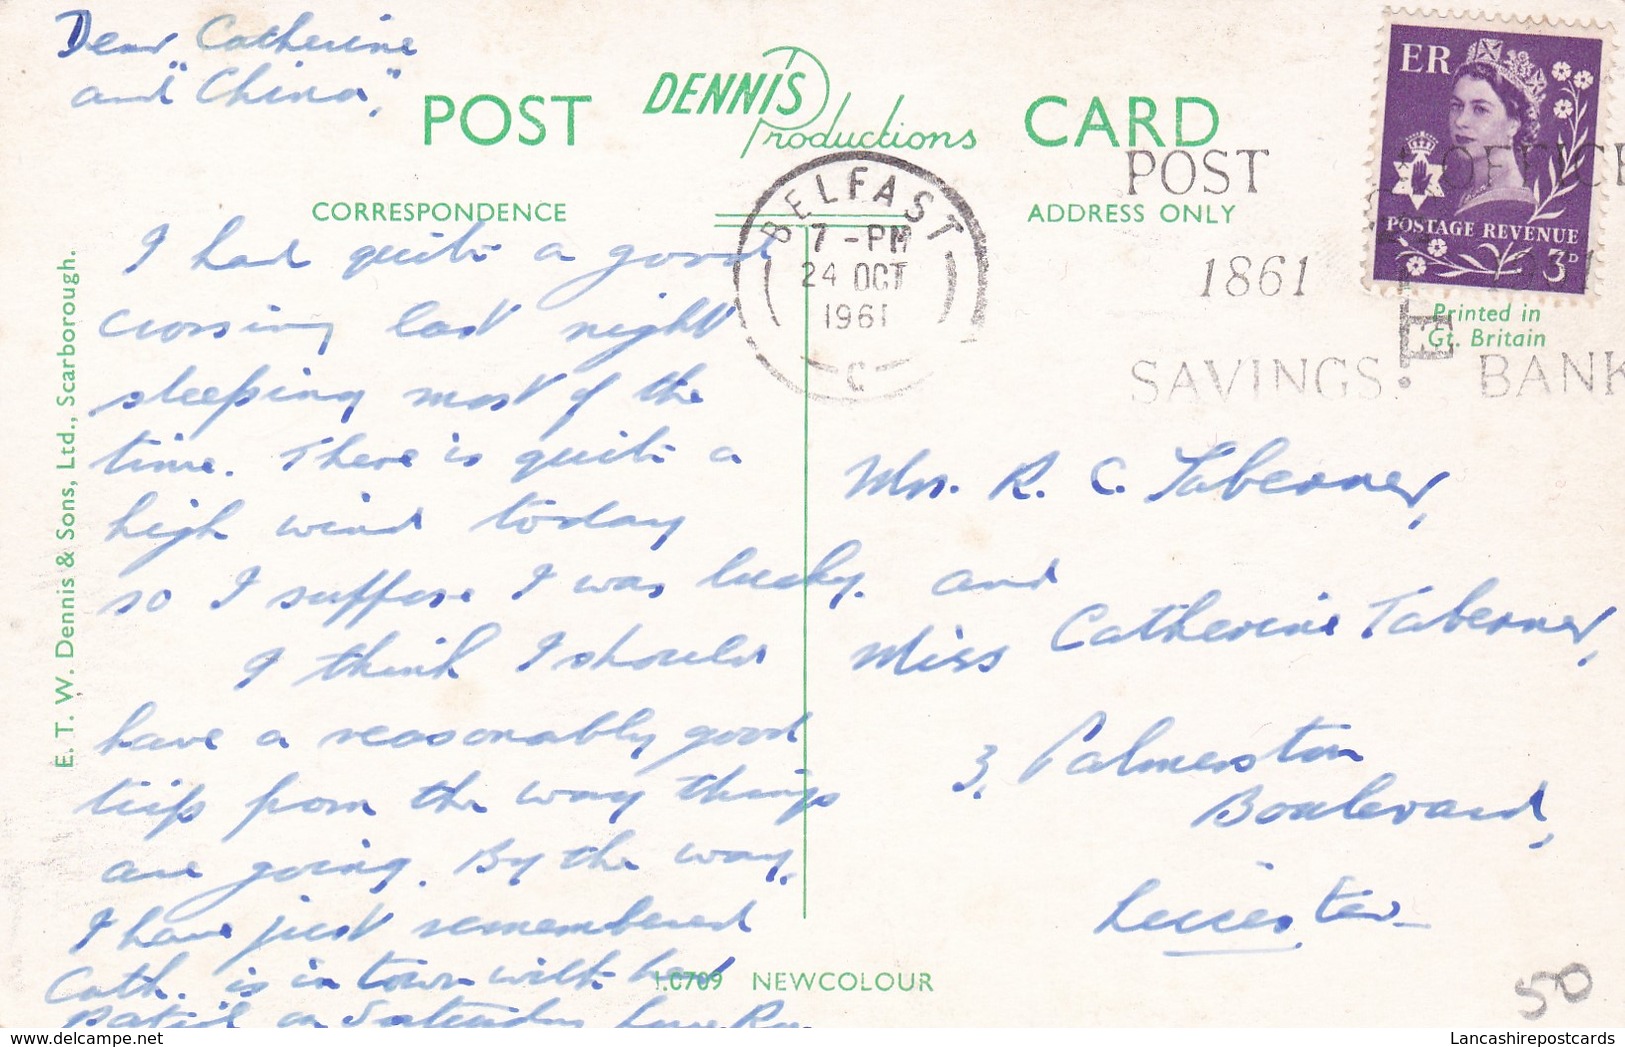 Dear Catherine
and "China",
POST
DENNIS
Productions
CARD
CORRESPONDENCE
ADDRESS ONLY
I had quite a good
crossing last night
sleeping most of the
time. There is quite a
high wind today
so I suppose I was lucky.
I think I should
have a reasonably good
trip from the way things
are going. By the way,
I have just remembered
Cath. is in town with
on Saturday Love
E. T. W. Dennis & Sons, Ltd., Scarborough.
BELFAST
7 - PM
24 OCT
1961
C
POST OFFICE
1861
SAVINGS BANK
ER
POSTAGE REVENUE
3D
Printed in
Gt. Britain
Mrs. R. C. Taberner,
and
Miss Catherine Taberner,
3, Palmerston
Boulevard,
Leicester
NEWCOLOUR
50
Lancashirepostcards